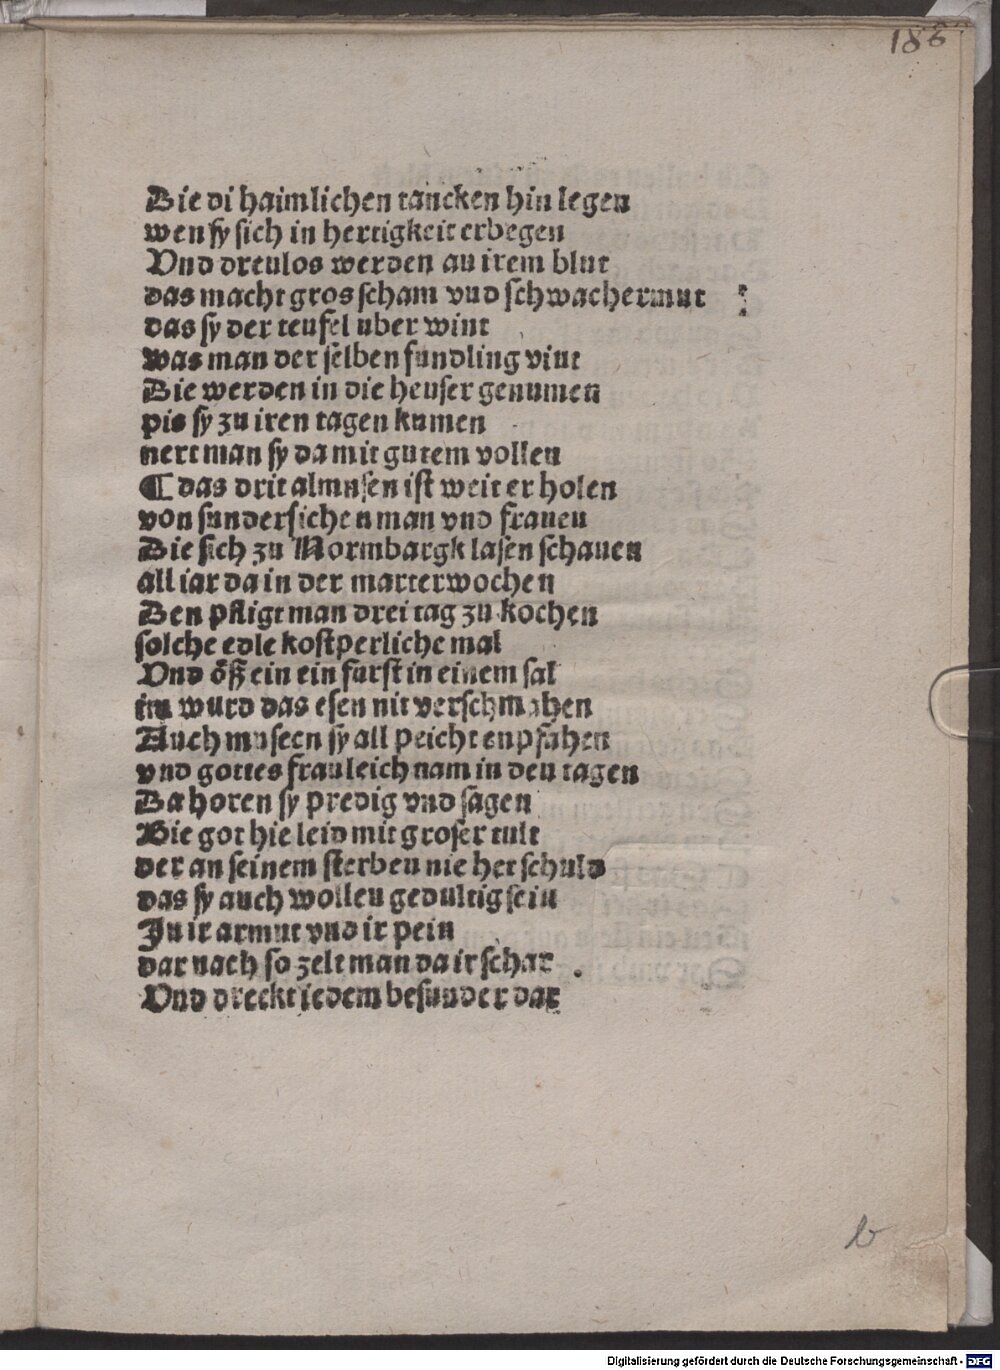 186
Die di haimlichen tancken hin legen
wen sy sich in hertigkeit erbegen
Vnd dreulos werden an irem blut
das macht gros scham vnd schwachermut :
das sy der teufel uber wint
was man der selben fundling vint
Die werden in die heuser genumen
pis sy zu iren tagen kumen
nert man sy da mit gutem vollen
¶ das drit almusen ist weit er holen
von sundersichen man vnd frauen
Die sich zu Normbargk lasen schauen
all iar da in der marterwochen
Den pfligt man drei tag zu kochen
solche edle kostperliche mal
Vnd öß ein ein furst in einem sal
im wurd das esen nit verschmahen
Auch musen sy all peicht enpfahen
vnd gottes frauleichnam in den tagen
Da horen sy predig vnd sagen
Wie got hie leid mit groser tult
der an seinem sterben nie het schuld
das sy auch wollen gedultig sein
In ir armut vnd ir pein
dar nach so zelt man da ir schar .
Vnd dreckt iedem besunder dar
b
Digitalisierung gefördert durch die Deutsche Forschungsgemeinschaft - DFG